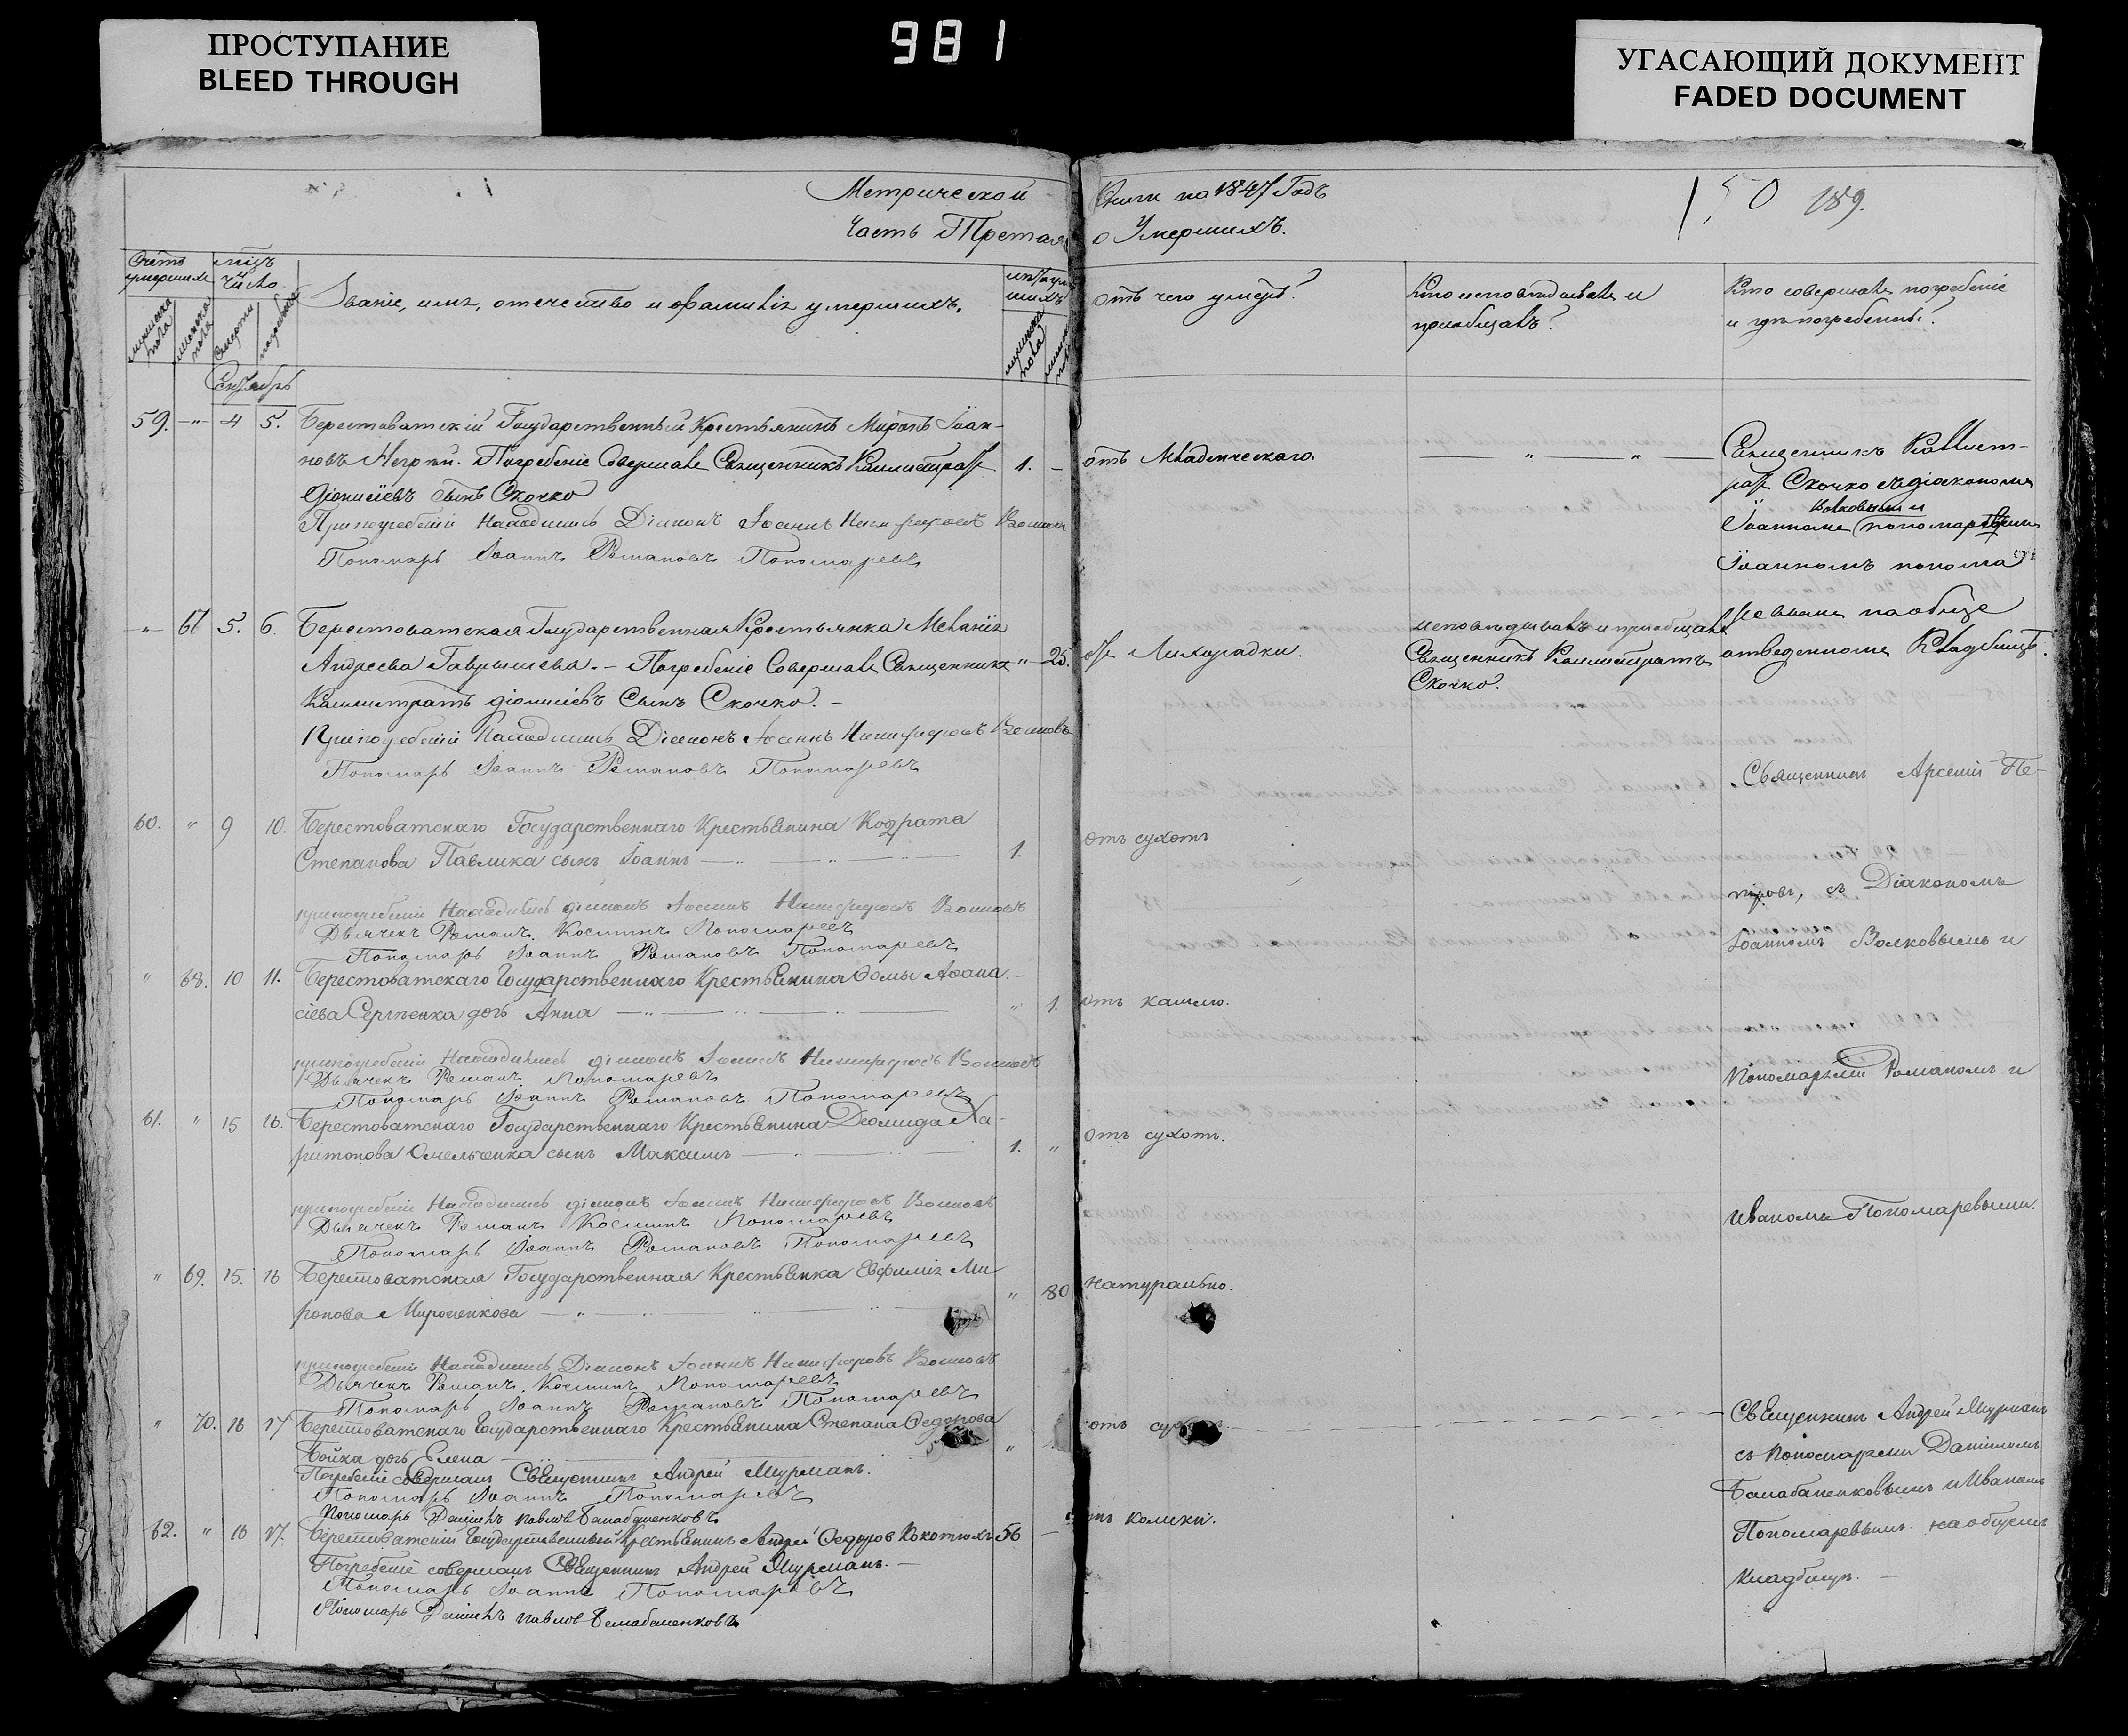 ПРОСТУПАНИЕ
BLEED THROUGH
981
УГАСАЮЩИЙ ДОКУМЕНТ
FADED DOCUMENT
Метрической Книги на 1847 Годъ
150 189.
Часть Третая о Умершихъ.
Счетъ умершихъ
мужеска пола
женска пола
число
смерти
погребенія
Званіе, имя, отечество и фамилія умершихъ.
мужеска пола
отъ чего умеръ?
Кто исповѣдывалъ и
приобщалъ?
Кто совершалъ погребеніе
и гдѣ погребены?
59. " 4 5. Берестоватскій Государственный Крестьянинъ Миронъ Іоан-
новъ Погребеніе Совершалъ Священникъ Каллистратъ 1. -
Діонисіевъ сынъ Скочко
При погребеніи Находились Діаконъ Іоаннъ Никифоровъ Волковъ
Пономарь Іоаннъ Романовъ Пономаревъ
отъ Младенческаго.
Священникъ Каллист-
ратъ Скочко съ діакономъ
Волковымъ и
Іоанномъ
Іоанномъ понома
" 67 5. 6. Берестоватская Государственная Крестьянка Меланія
Андреева Гаврышева. - Погребеніе Совершалъ Священникъ " 25.
Каллистратъ Діонисіевъ Сынъ Скочко. -
При погребеніи Находились Діаконъ Іоаннъ Никифоровъ Волковъ
Пономарь Іоаннъ Романовъ Пономаревъ
отъ Лихорадки.
исповѣдывалъ и приобщалъ
Священникъ Каллистратъ
Скочко.
ревымъ на обще
отведенномъ Кладбищѣ.
Священникъ Арсеній Пе-
60. " 9 10. Берестоватскаго Государственнаго Крестьянина Кодрата
Степанова Павлика сынъ Іоаннъ 1.
при погребеніи Находились діаконъ Іоаннъ Никифоровъ Волковъ
Дьячекъ Романъ Косминъ Пономаревъ
Пономарь Іоаннъ Романовъ Пономаревъ
отъ сухотъ
тровъ, съ Діакономъ
Іоанномъ Волковымъ и
" 68. 10 11. Берестоватскаго Государственнаго Крестьянина Фомы Аѳана-
сіева Сергіенка дочь Анна " 1.
при погребеніи Находились діаконъ Іоаннъ Никифоровъ Волковъ
Дьячекъ Романъ Пономаревъ
Пономарь Іоаннъ Романовъ Пономаревъ
отъ кашлю.
Пономарями Романомъ и
61. " 15 16. Берестоватскаго Государственнаго Крестьянина Деомида Ха-
ритонова Омельченка сынъ Максимъ 1. "
при погребеніи Находились діаконъ Іоаннъ Никифоровъ Волковъ
Дьячекъ Романъ Косминъ Пономаревъ
Пономарь Іоаннъ Романовъ Пономаревъ
отъ сухотъ.
Иваномъ Пономаревыми.
" 69. 15. 16 Берестоватская Государственная Крестьянка Евфимія Ми-
ронова Мирошенкова " 80
при погребеніи Находились Діаконъ Іоаннъ Никифоровъ Волковъ
Дьячекъ Романъ Косминъ Пономаревъ
Пономарь Іоаннъ Романовъ Пономаревъ
натурально.
" 70. 16 17 Берестоватскаго Государственнаго Крестьянина Степана Федорова
Бойка дочь Елена "
Погребеніе совершалъ Священникъ Андрей Мурманъ.
Пономарь Іоаннъ Пономаревъ
Пономарь Даніилъ Павловъ Балабаненковъ
отъ
Священникъ Андрей Мурманъ
съ Пономарями Даніиломъ
Балабаненковымъ и Иваномъ
Пономаревымъ. на общемъ
кладбищѣ.
62. " 16 17. Берестоватскій Государственный Крестьянинъ Андрей Федоровъ Кокотюхъ 56
Погребеніе совершалъ Священникъ Андрей Мурманъ. -
Пономарь Іоаннъ Пономаревъ
Пономарь Даніилъ Павловъ Балабаненковъ
отъ колики.